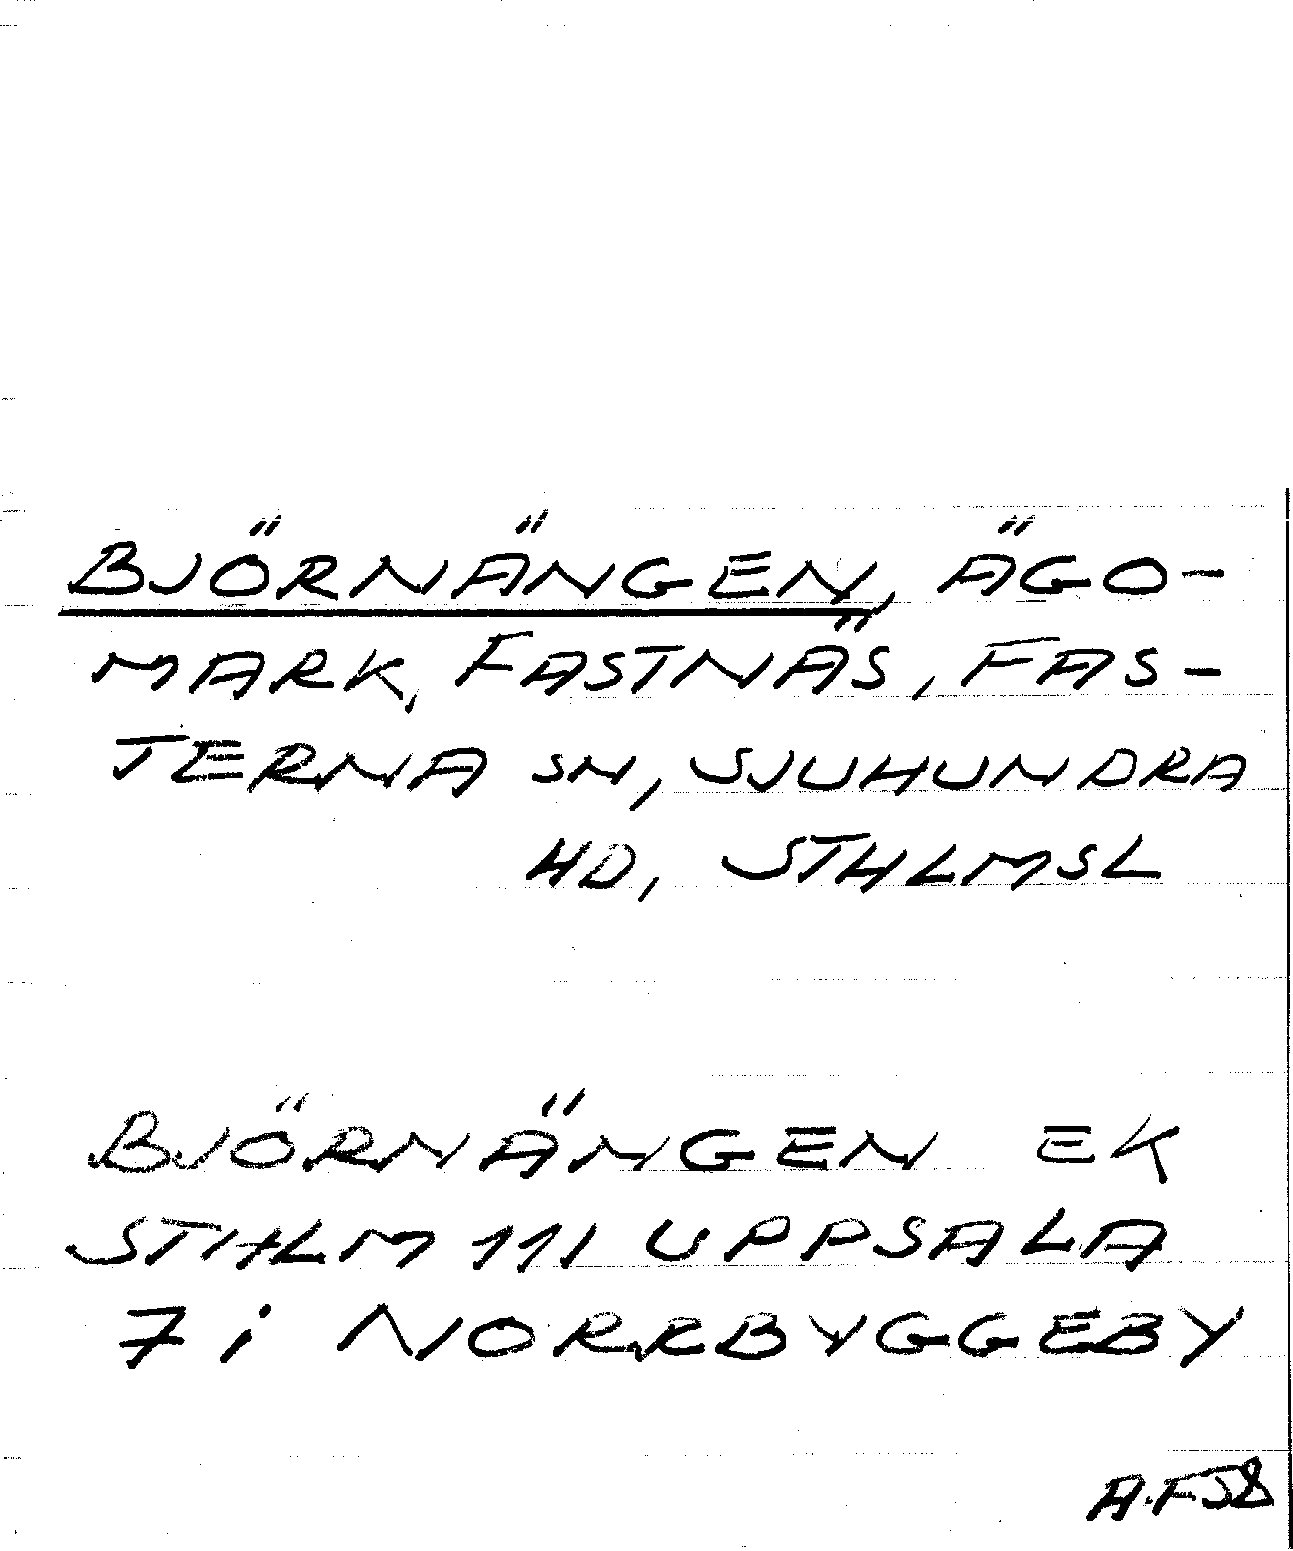 BJÖRNÄNGEN, ÄGO-
MARK, FASTNÄS, FAS-
TERNA SN, SJUHUNDRA
HD, STHLMSL
BJÖRNÄNGEN EK
STHLM 111 UPPSALA
7 i NORRBYGGEBY